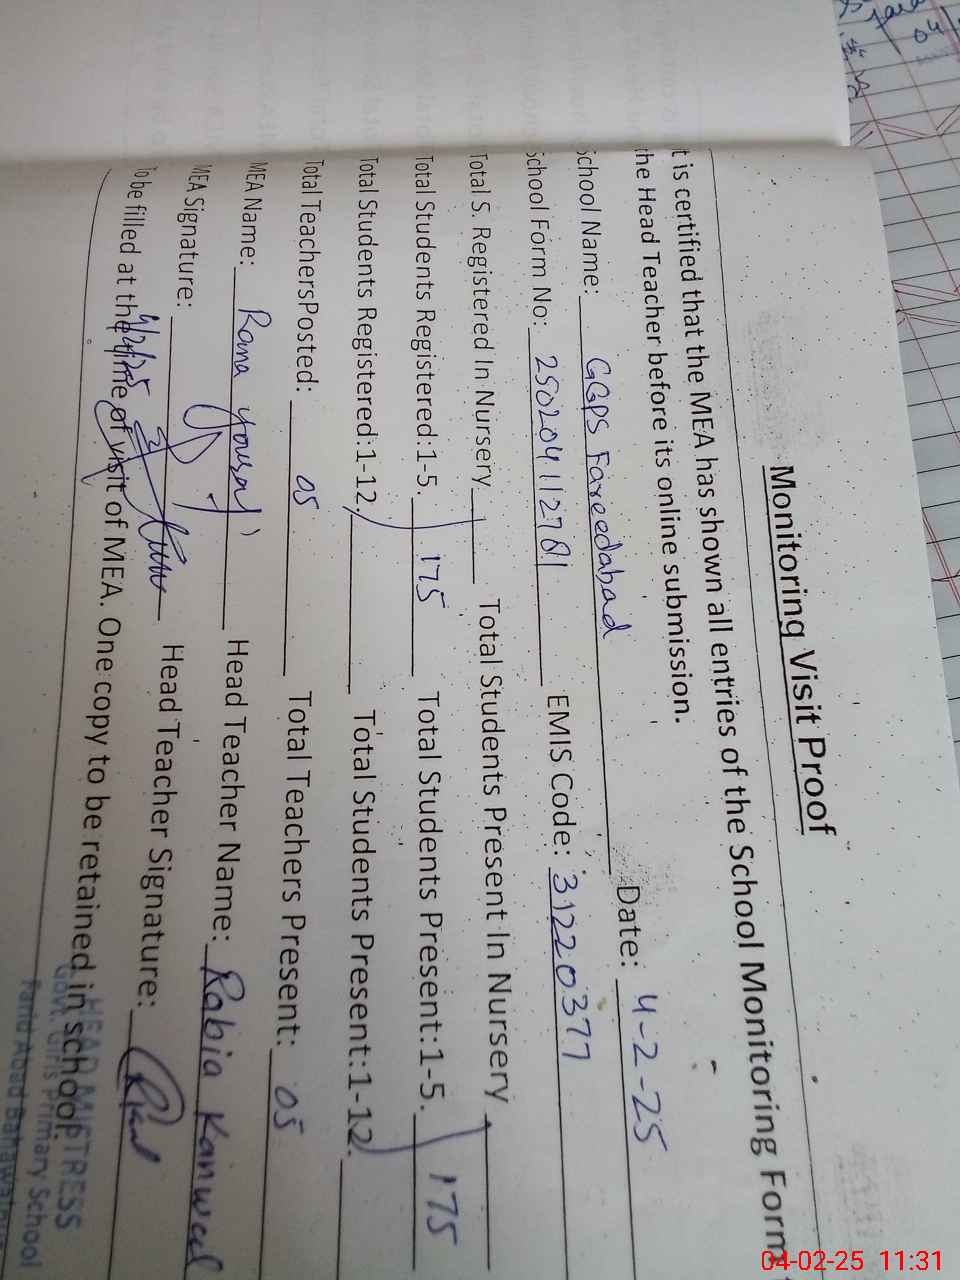 Monitoring Visit Proof
t is certified that the MEA has shown all entries of the School Monitoring Form
the Head Teacher before its online submission.
School Name: GGPS Fareedabad Date: 4-2-25
School Form No: EMIS Code: 31220377
Total S. Registered In Nursery Total Students Present In Nursery
Total Students Registered:1-5. 175 Total Students Present:1-5. 175
Total Students Registered:1-12. Total Students Present:1-12.
Total TeachersPosted: 05 Total Teachers Present: 05
MEA Name: Rana Head Teacher Name: Rabia Kanwal
MEA Signature: Head Teacher Signature:
4/2/25
To be filled at the time of visit of MEA. One copy to be retained in school.
HEAD MISTRESS
Govt. Girls Primary School
Farid Abad Bahawalpur
04-02-25 11:31